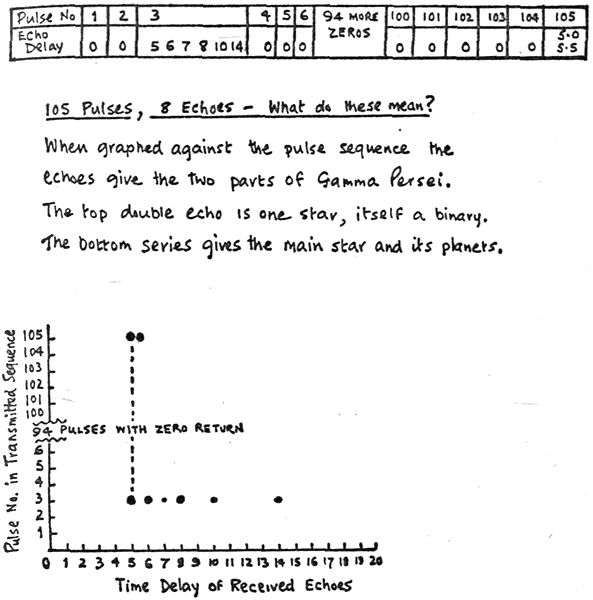 Pulse No 1 2 3 4 5 6 94 MORE ZEROS 100 101 102 103 104 105
Echo Delay 0 0 5 6 7 8 10 14 0 0 0 0 0 0 0 0 5.0 5.5
105 Pulses, 8 Echoes – What do these mean?
When graphed against the pulse sequence the
echoes give the two parts of Gamma Persei.
The top double echo is one star, itself a binary.
The bottom series gives the main star and its planets.
Pulse No. in Transmitted Sequence
105
104
103
102
101
100
94 PULSES WITH ZERO RETURN
6
5
4
3
2
1
0 1 2 3 4 5 6 7 8 9 10 11 12 13 14 15 16 17 18 19 20
Time Delay of Received Echoes